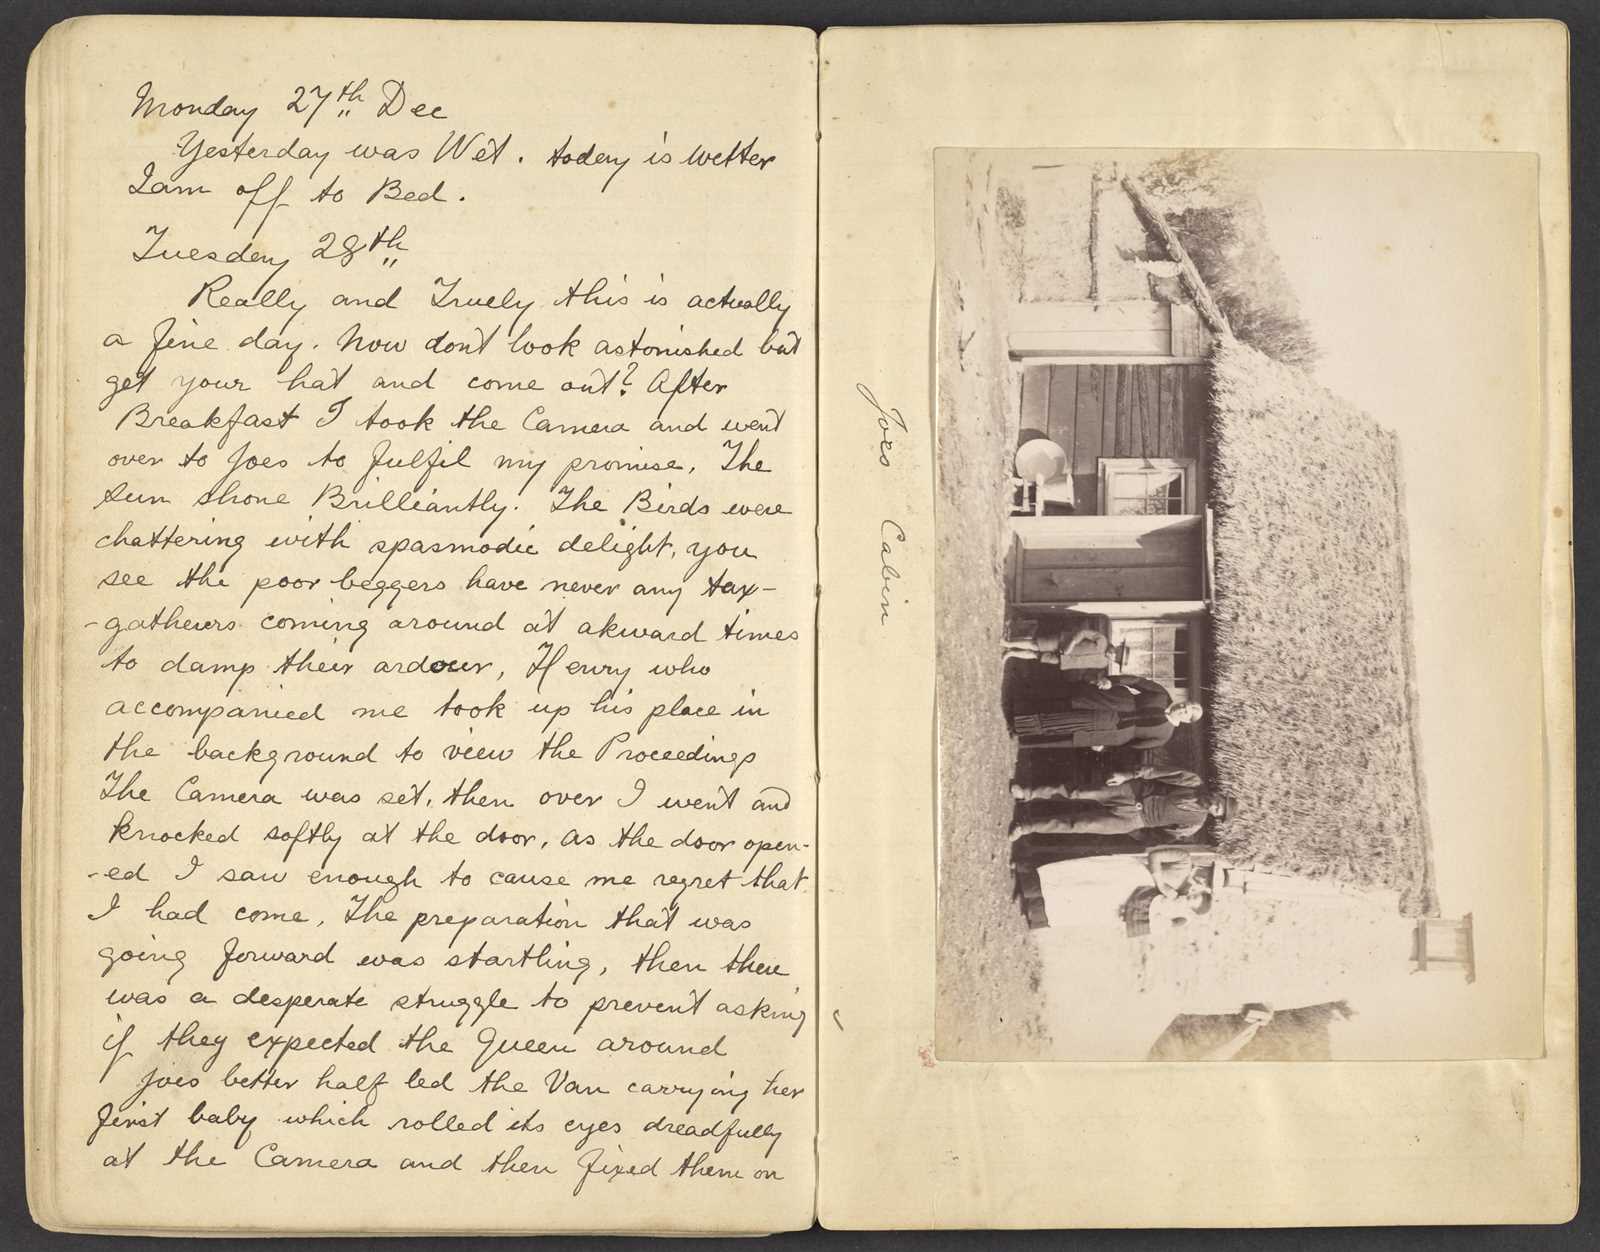 Monday 27th Dec
Yesterday was Wet. today is wetter
I am off to Bed.
Tuesday 28th
Really and Truely this is actually
a fine day. Now dont look astonished but
get your hat and come out? After
Breakfast I took the Camera and went
over to Joes to fulfil my promise. The
sun shone Brilliantly. The Birds were
chattering with spasmodic delight, you
see the poor beggers have never any tax-
-gatherers coming around at akward times
to damp their ardour, Henry who
accompanied me took up his place in
the background to view the Proceedings
The Camera was set, then over I went and
knocked softly at the door, as the door open-
-ed I saw enough to cause me regret that
I had come, The preparation that was
going forward was startling, then there
was a desperate struggle to prevent asking
if they expected the Queen around
Joes better half led the Van carrying her
first baby which rolled its eyes dreadfully
at the Camera and then fixed them on
Joes Cabin